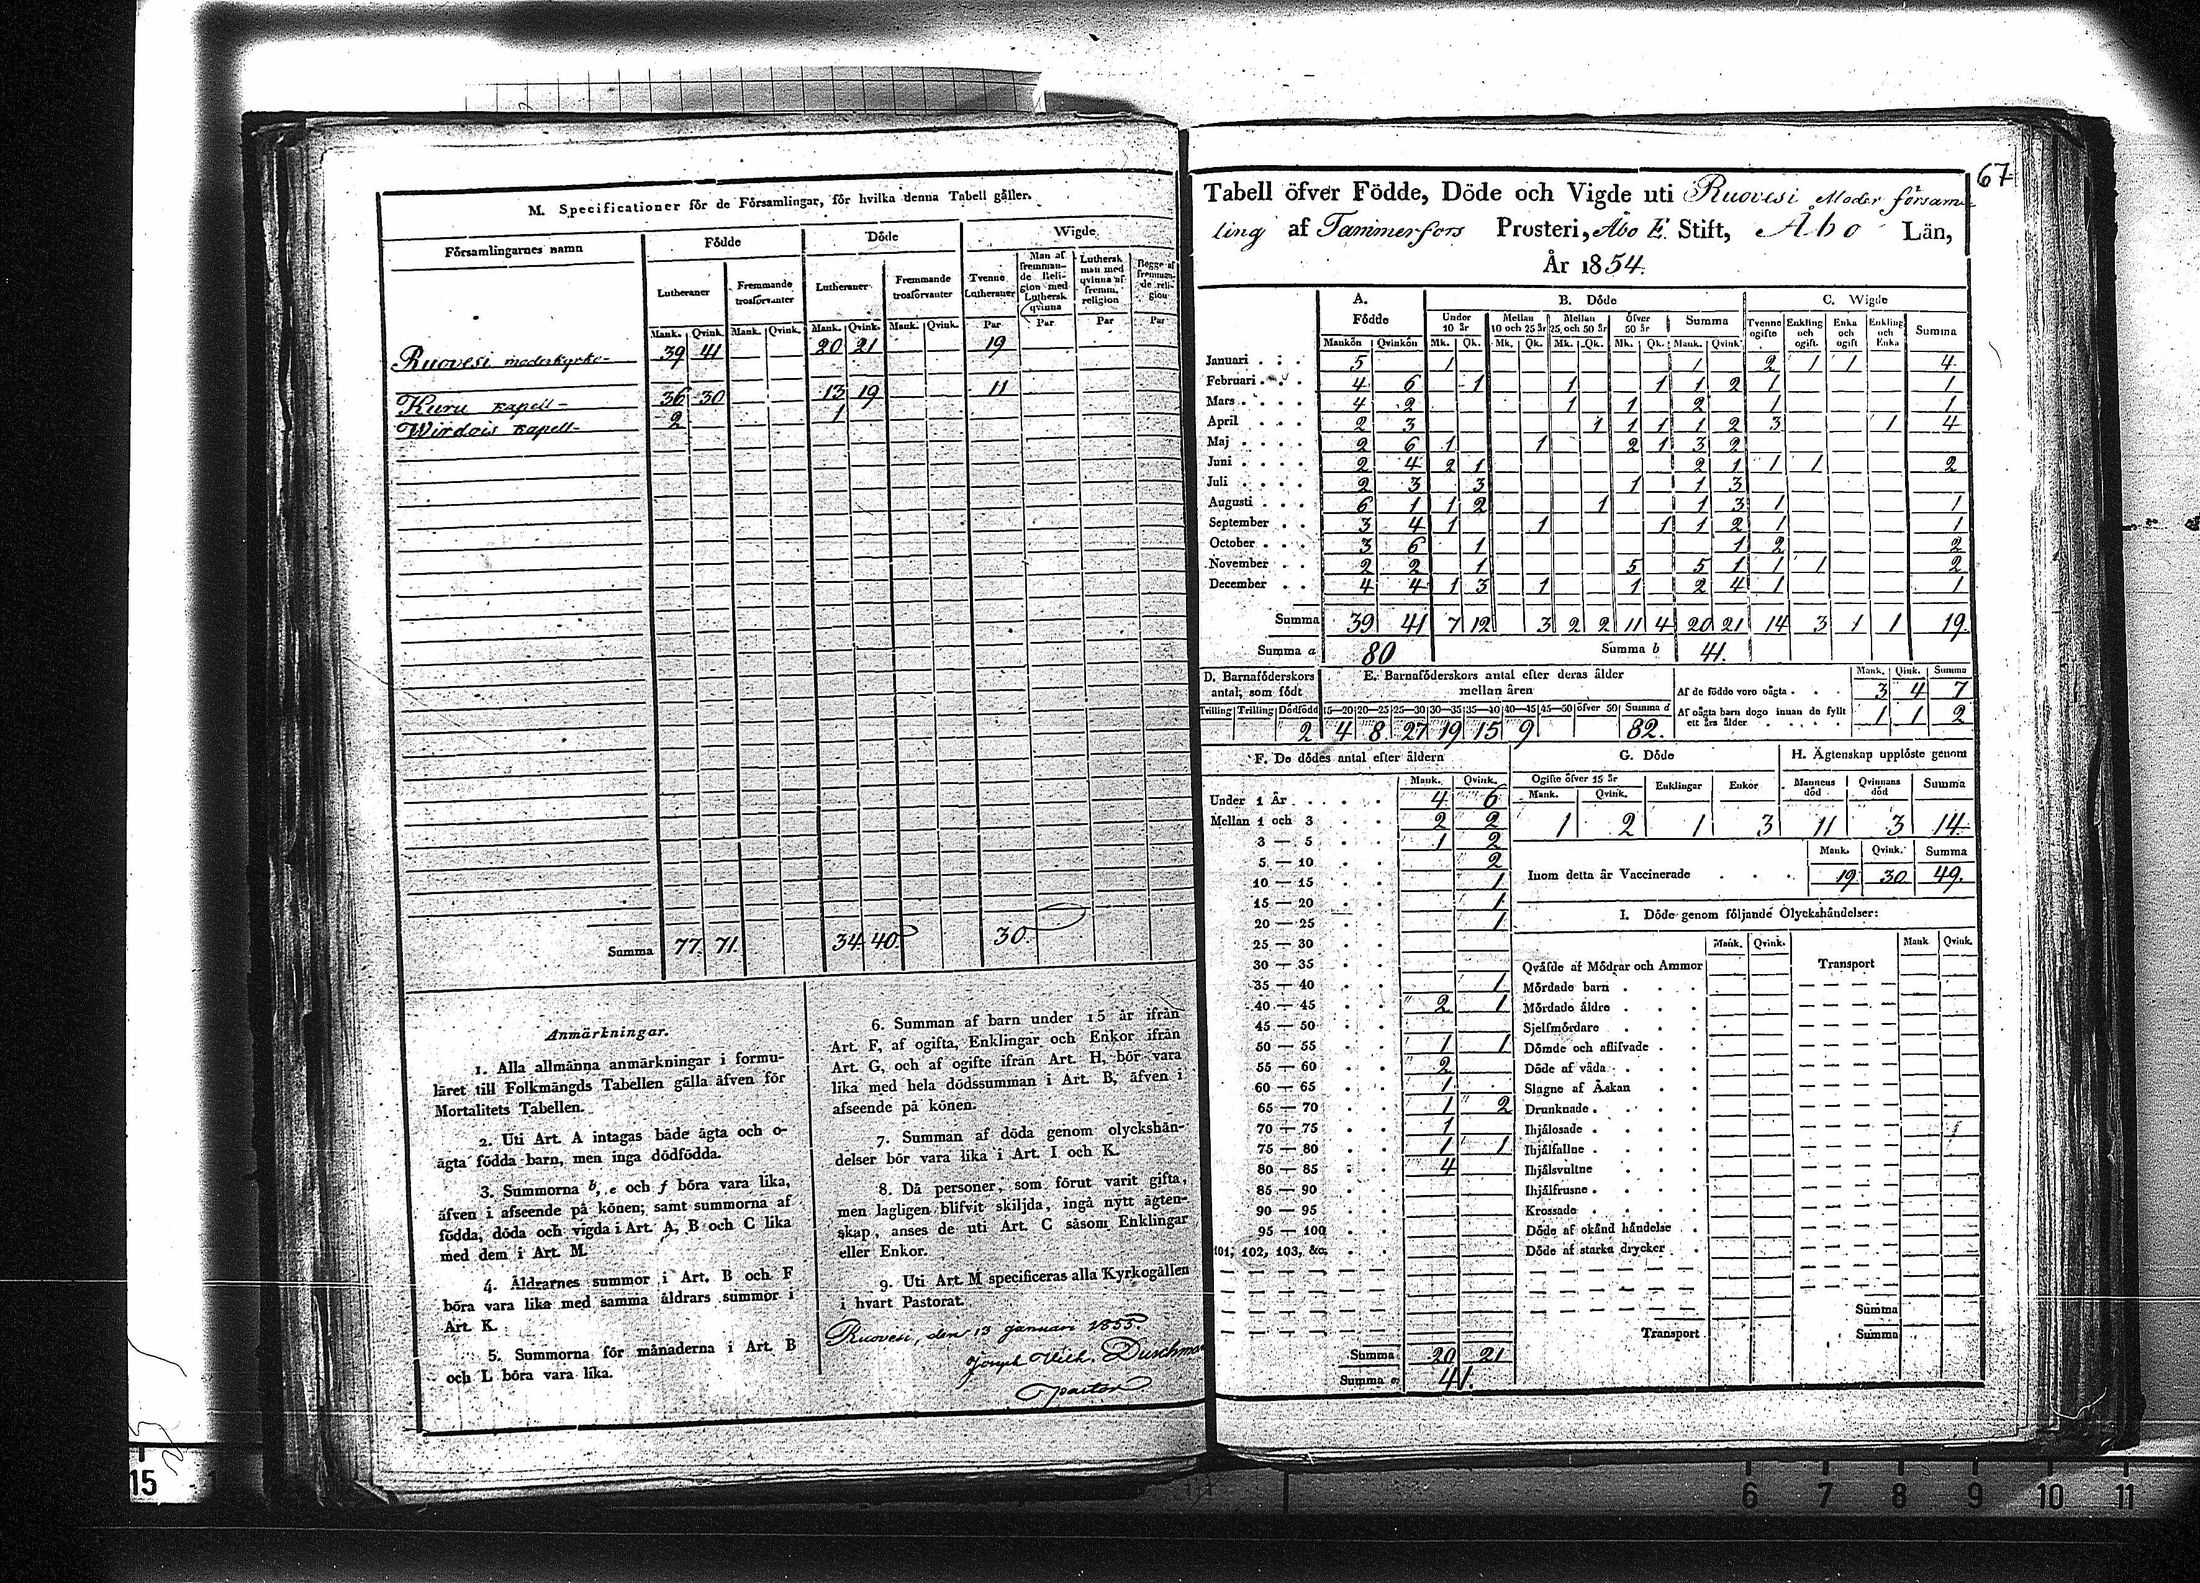 M. Specificationer för de Församlingar, för hvilka denna Tabell gäller.
Församlingarnes namn | Födde | Döde | Wigde
Lutheraner | Fremmande trosförvanter | Lutheraner | Fremmande trosförvanter | Tvenne Lutheraner | Man af fremmande Religion med Luthersk qvinna | Luthersk man med qvinna af fremm. religion | Begge af fremmande religion
Mank. | Qvink. | Mank. | Qvink. | Mank. | Qvink. | Mank. | Qvink. | Par | Par | Par | Par
Ruovesi moderkyrko- 39 41 20 21 19
Kuru kapell- 36 30 13 19 11
Wirdois kapell- 2 1
Summa 77. 71. 34. 40. 30.
Anmärkningar.
1. Alla allmänna anmärkningar i formu-
läret till Folkmängds Tabellen gälla äfven för
Mortalitets Tabellen.
2. Uti Art. A intagas både ägta och o-
ägta födda barn, men inga dödfödda.
3. Summorna b, e och f böra vara lika,
äfven i afseende på könen; samt summorna af
födda, döda och vigda i Art. A, B och C lika
med dem i Art. M.
4. Åldrarnes summor i Art. B och F
böra vara lika med samma åldrars summor i
Art. K.
5. Summorna för månaderna i Art. B
och L böra vara lika.
6. Summan af barn under 15 år ifrån
Art. F, af ogifta, Enklingar och Enkor ifrån
Art. G, och af ogifte ifrån Art. H, bör vara
lika med hela dödssumman i Art. B, äfven i
afseende på könen.
7. Summan af döda genom olyckshän-
delser bör vara lika i Art. I och K.
8. Då personer, som förut varit gifta,
men lagligen blifvit skiljda, ingå nytt ägten-
skap, anses de uti Art. C såsom Enklingar
eller Enkor.
9. Uti Art. M specificeras alla Kyrkogällen
i hvart Pastorat.
Ruovesi, den 13 januari 1855.
Joseph Wilh. Duschman
Pastor
67
Tabell öfver Födde, Döde och Vigde uti Ruovesi Moder församl-
ling af Tammerfors Prosteri, Åbo E. Stift, Åbo Län,
År 1854.
A. Födde | B. Döde | C. Wigde
Under 10 år | Mellan 10 och 25 år | Mellan 25 och 50 år | Öfver 50 år | Summa | Tvenne ogifte | Enkling och ogift. | Enka och ogift | Enkling och Enka | Summa
Mankön | Qvinkön | Mk. | Qk. | Mk. | Qk. | Mk. | Qk. | Mk. | Qk. | Mank. | Qvink.
Januari 5 1 1 2 1 1 4
Februari 4 6 1 1 1 1 2 1 1
Mars 4 2 1 1 2 1 1
April 2 3 1 1 1 1 2 3 1 4
Maj 2 6 1 1 2 1 3 2
Juni 2 4 2 1 2 1 1 1 2
Juli 2 3 3 1 1 3
Augusti 6 1 1 2 1 1 3 1 1
September 3 4 1 1 1 1 2 1 1
October 3 6 1 1 2 2
November 2 2 1 5 5 1 1 1 2
December 4 4 1 3 1 1 2 4 1 1
Summa 39 41 7 12 3 2 2 11 4 20 21 14 3 1 1 19.
Summa a 80 Summa b 41.
D. Barnaföderskors antal, som födt | E. Barnaföderskors antal efter deras ålder mellan åren | Mank. | Qvink. | Summa
Af de födde voro oägta 3 4 7
Tvilling | Trilling | Dödfödd | 15—20 | 20—25 | 25—30 | 30—35 | 35—40 | 40—45 | 45—50 | öfver 50 | Summa d
Af oägta barn dogo innan de fyllt ett års ålder 1 1 2
2 4 8 27 19 15 9 82.
F. De dödes antal efter åldern
Mank. | Qvink.
Under 1 År 4 6
Mellan 1 och 3 2 2
3 — 5 1 2
5 — 10 2
10 — 15 1
15 — 20 1
20 — 25 1
25 — 30
30 — 35
35 — 40 1
40 — 45 2 1
45 — 50
50 — 55 1 1
55 — 60 2
60 — 65 1
65 — 70 1 2
70 — 75 1
75 — 80 1 1
80 — 85 4
85 — 90
90 — 95
95 — 100
101, 102, 103, &c.
Summa 20 21
Summa e 41.
G. Döde
Ogifte öfver 15 år | Enklingar | Enkor
Mank. | Qvink.
1 2 1 3
H. Ägtenskap upplöste genom
Mannens död | Qvinnans död | Summa
11 3 14
Mank. | Qvink. | Summa
Inom detta år Vaccinerade 19 30 49.
I. Döde genom följande Olyckshändelser:
Mank. | Qvink. | Mank | Qvink.
Qväfde af Mödrar och Ammor | Transport
Mördade barn
Mördade äldre
Sjelfmördare
Dömde och aflifvade
Döde af våda
Slagne af Åskan
Drunknade
Ihjälosade
Ihjälfallne
Ihjälsvultne
Ihjälfrusne
Krossade
Döde af okänd händelse
Döde af starka drycker
Summa
Transport | Summa
15
6 7 8 9 10 11